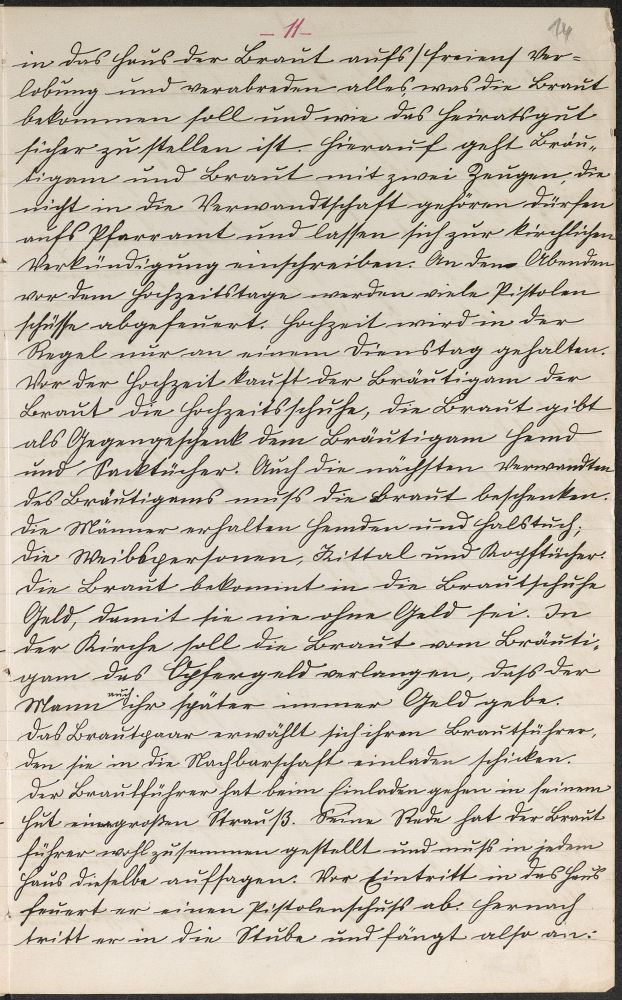 - 11 -
14
in das Haus der Braut aufs/freien/ Ver-
lobung und verabreden alles, was die Braut
bekommen soll und wie das Heiratsgut
sicher zu stellen ist. Hierauf geht Bräu-
tigam und Braut mit zwei Zeugen, die
nicht in die Verwandtschaft gehören dürfen
aufs Pfarramt und lassen sich zur kirchlichen
Verkündigung einschreiben. An den Abenden
vor dem Hochzeitstage werden viele Pistolen
schüsse abgefeuert. Hochzeit wird in der
Regel nur an einem Dienstag gehalten.
Vor der Hochzeit kauft der Bräutigam der
Braut die Hochzeitsschuhe, die Braut gibt
als Gegengeschenk dem Bräutigam Hemd
und Sacktücher. Auch die nächsten Verwandten
des Bräutigams muß die Braut beschenken.
Die Männer erhalten Hemden und Halstuch;
die Weibspersonen, Kittal und Kopftücher.
Die Braut bekommt in die Brautschuhe
Geld, damit sie nie ohne Geld sei. In
der Kirche soll die Braut vom Bräuti-
gam das Opfergeld verlangen, daß der
Mann auch ihr später immer Geld gebe.
Das Brautpaar erwählt sich ihren Brautführer,
den sie in die Nachbarschaft einladen schicken.
Der Brautführer hat beim Einladen gehen in seinem
Hut einen großen Strauß. Seine Rede hat der Braut
führer wohl zusammen gestellt und muß in jedem
Haus dieselbe aufsagen. Vor Eintritt in das Haus
feuert er einen Pistolenschuß ab. Hernach
tritt er in die Stube und fängt also an: